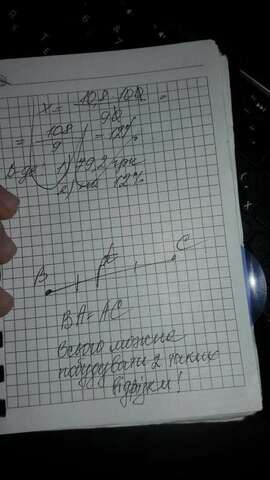 x = 10,8·100 / 90 =
= 108 / 9 = 12%
В-дь 1) 79,2 грн
2) на 12%
A
C
B
BA = AC
Всього можна
побудувати 2 таких
відрізки!